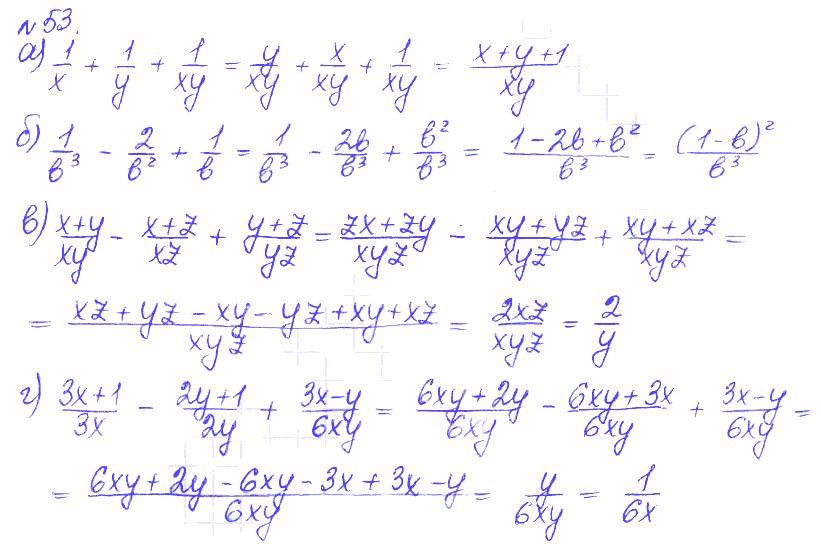 № 53.
а) 1/x + 1/y + 1/xy = y/xy + x/xy + 1/xy = (x+y+1)/xy
б) 1/в³ − 2/в² + 1/в = 1/в³ − 2в/в³ + в²/в³ = (1−2в+в²)/в³ = (1−в)²/в³
в) (x+y)/xy − (x+z)/xz + (y+z)/yz = (zx+zy)/xyz − (xy+yz)/xyz + (xy+xz)/xyz =
= (xz+yz−xy−yz+xy+xz)/xyz = 2xz/xyz = 2/y
г) (3x+1)/3x − (2y+1)/2y + (3x−y)/6xy = (6xy+2y)/6xy − (6xy+3x)/6xy + (3x−y)/6xy =
= (6xy+2y−6xy−3x+3x−y)/6xy = y/6xy = 1/6x